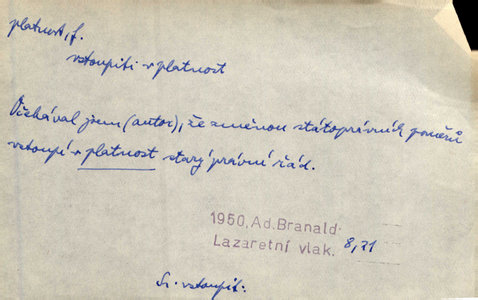 platnost, f.
vstoupiti v platnost
Očekával jsem (autor), že změnou státoprávních poměrů
vstoupí v platnost starý právní řád.
1950, Ad. Branald:
Lazaretní vlak. 8, 71
Sr. vstoupit: